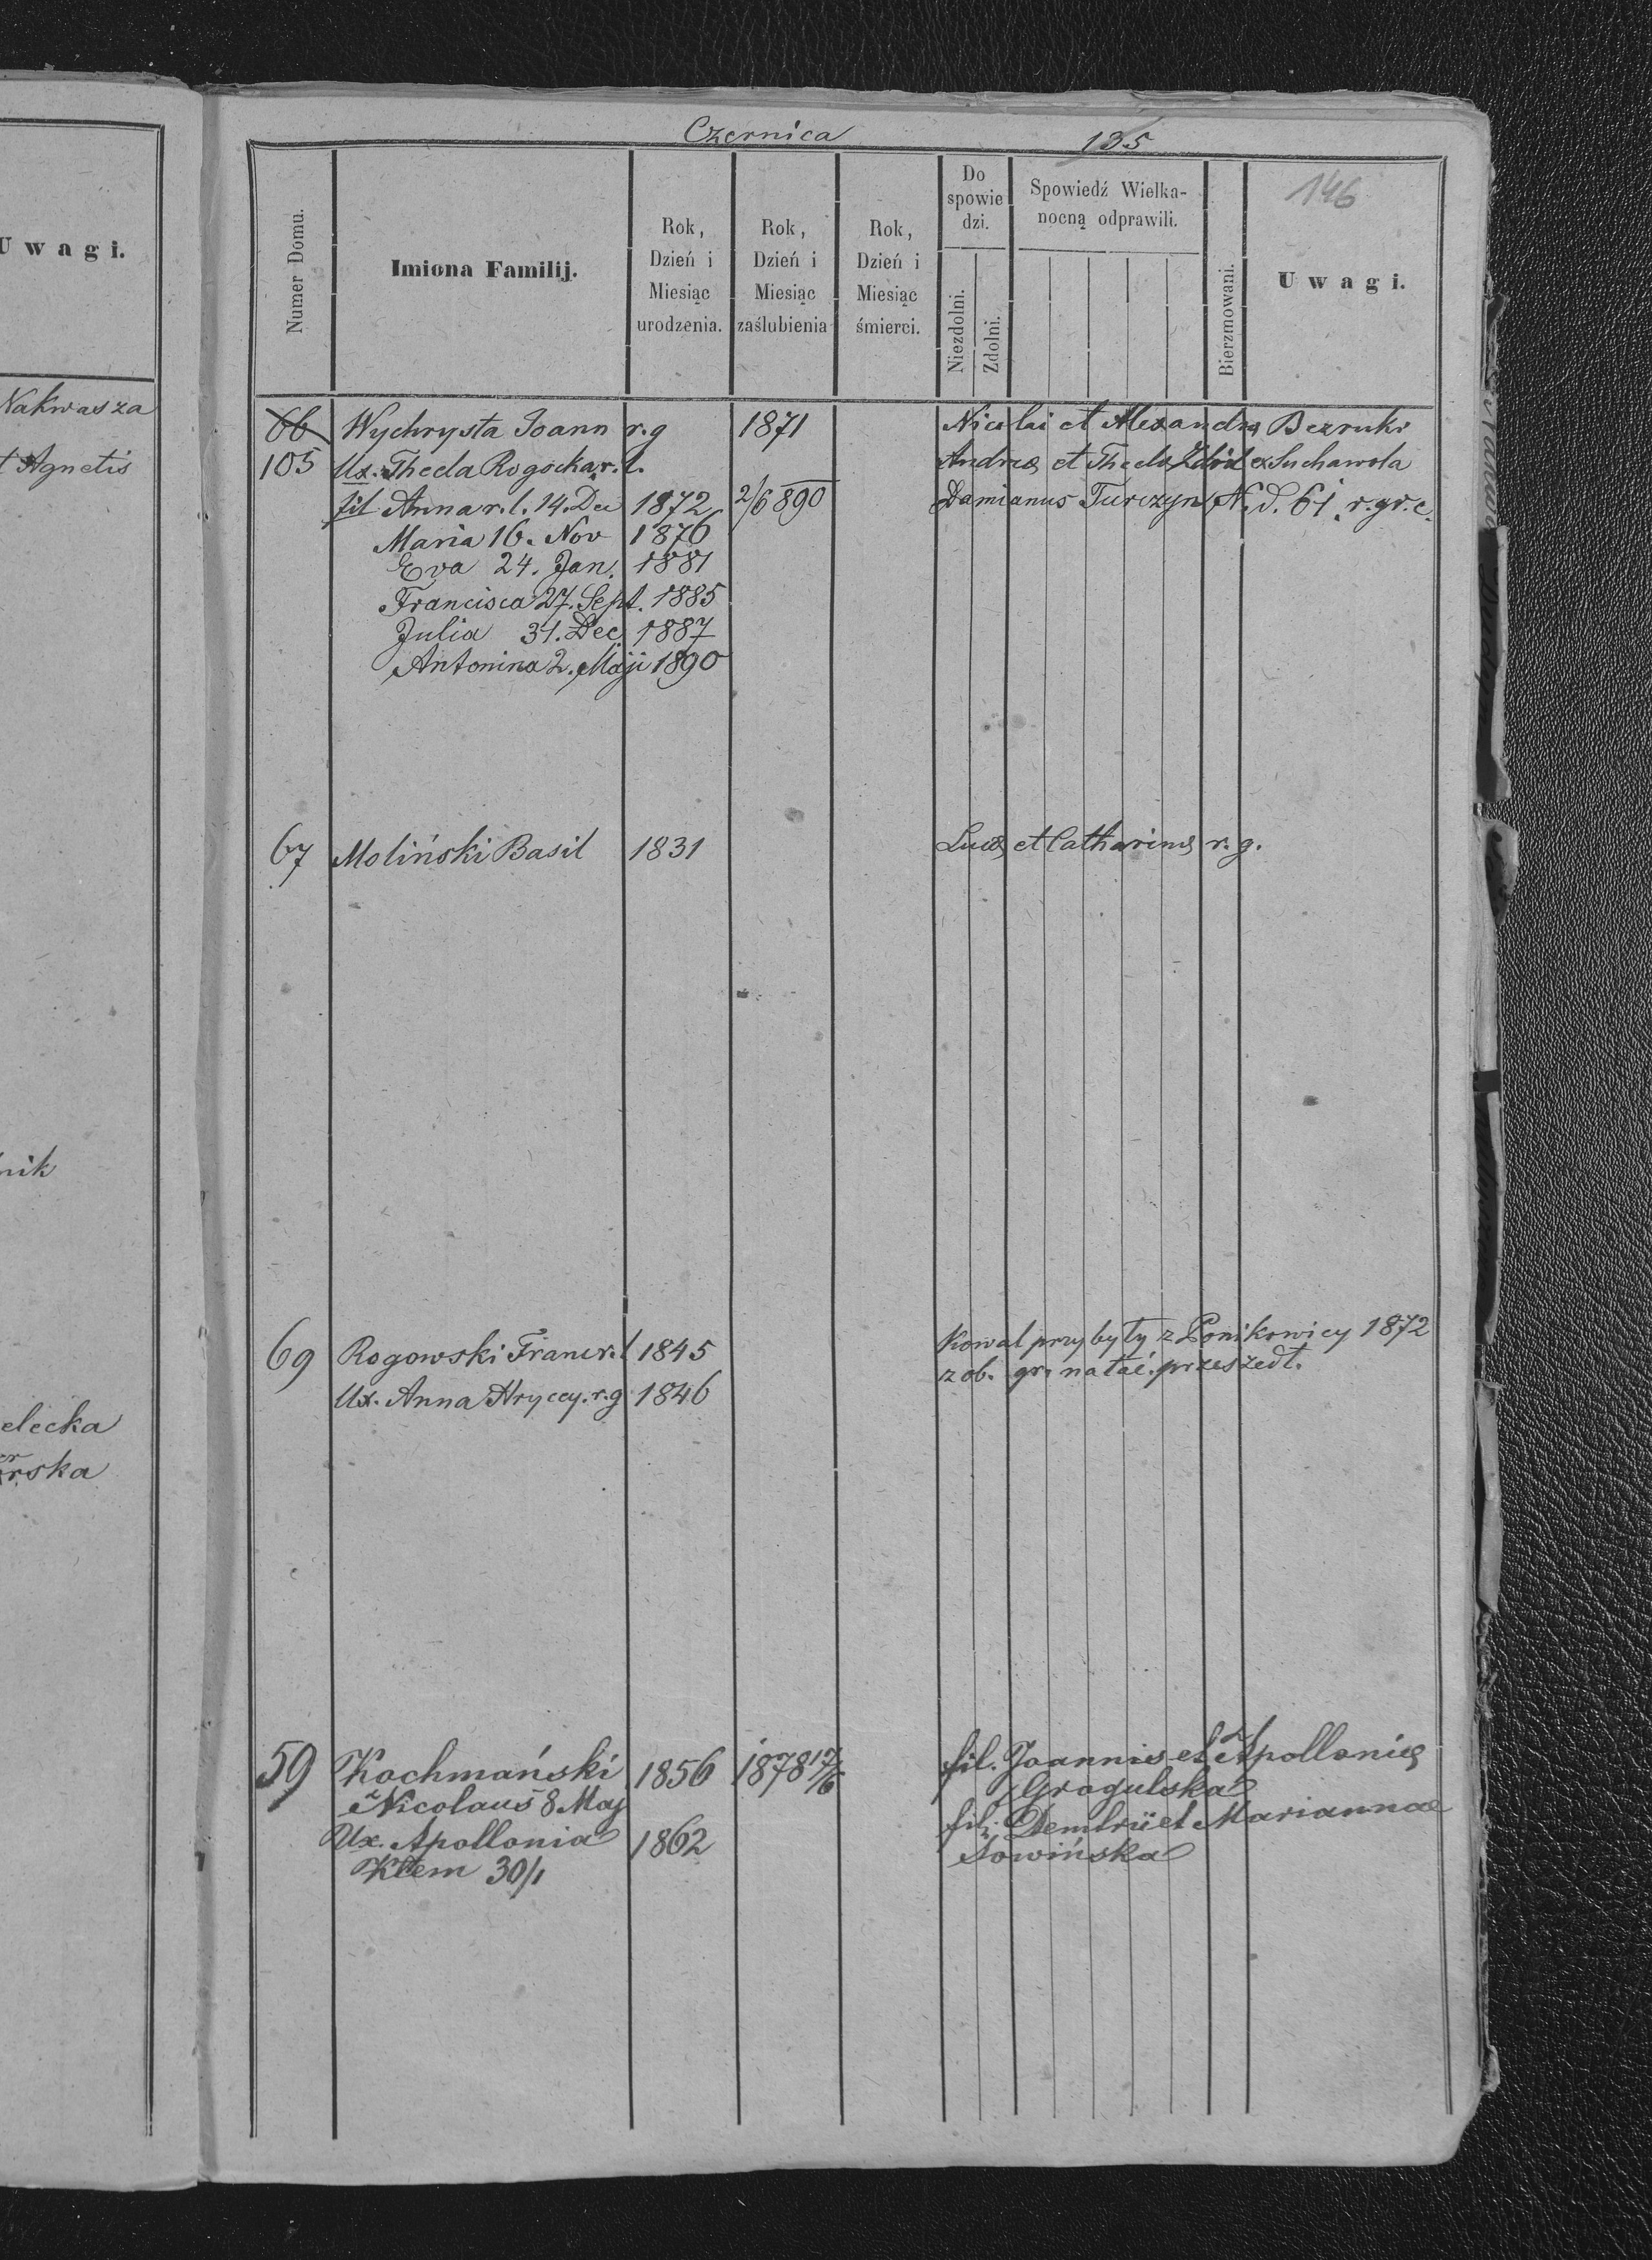 Czernica 135
146
Uwagi.
Numer Domu.
Imiona Familij.
Rok, Dzień i Miesiąc urodzenia.
Rok, Dzień i Miesiąc zaślubienia
Rok, Dzień i Miesiąc śmierci.
Do spowie dzi.
Niezdolni.
Zdolni.
Spowiedź Wielka-
nocną odprawili.
Bierzmowani.
Uwagi.
Nakwasza
t Agnetis
nik
elecka
rska
66 Wychrysta Joann r.g 1871 Nicolai et Alexandræ Bezruki
105 Ux. Thecla Rogocka r.l. Andreæ et Theclæ ex Suchawola
fil Anna r.l. 14. Dec 1872 2/6 890 Damianus Turczyn N.d. 61 r.gr.c.
Maria 16. Nov 1876
Eva 24. Jan. 1881
Francisca 27. Sept. 1885
Julia 31. Dec 1887
Antonina 2. Maji 1890
67 Moliński Basil 1831 Lucæ et Catharinæ r.g.
69 Rogowski Franc r.l 1845 Kowal przybyły z Ponikowicy 1872
z ob. gr. na łać. przeszedł.
Ux. Anna Hrycey. r.g 1846
59 Kochmański 1856 1878 17/6 fil. Joannis et Apolloniæ
Nicolaus 8 Maj Gragulska
Ux. Apollonia 1862 fil. Demtrii et Mariannae
Klem 30/1 Sowińska